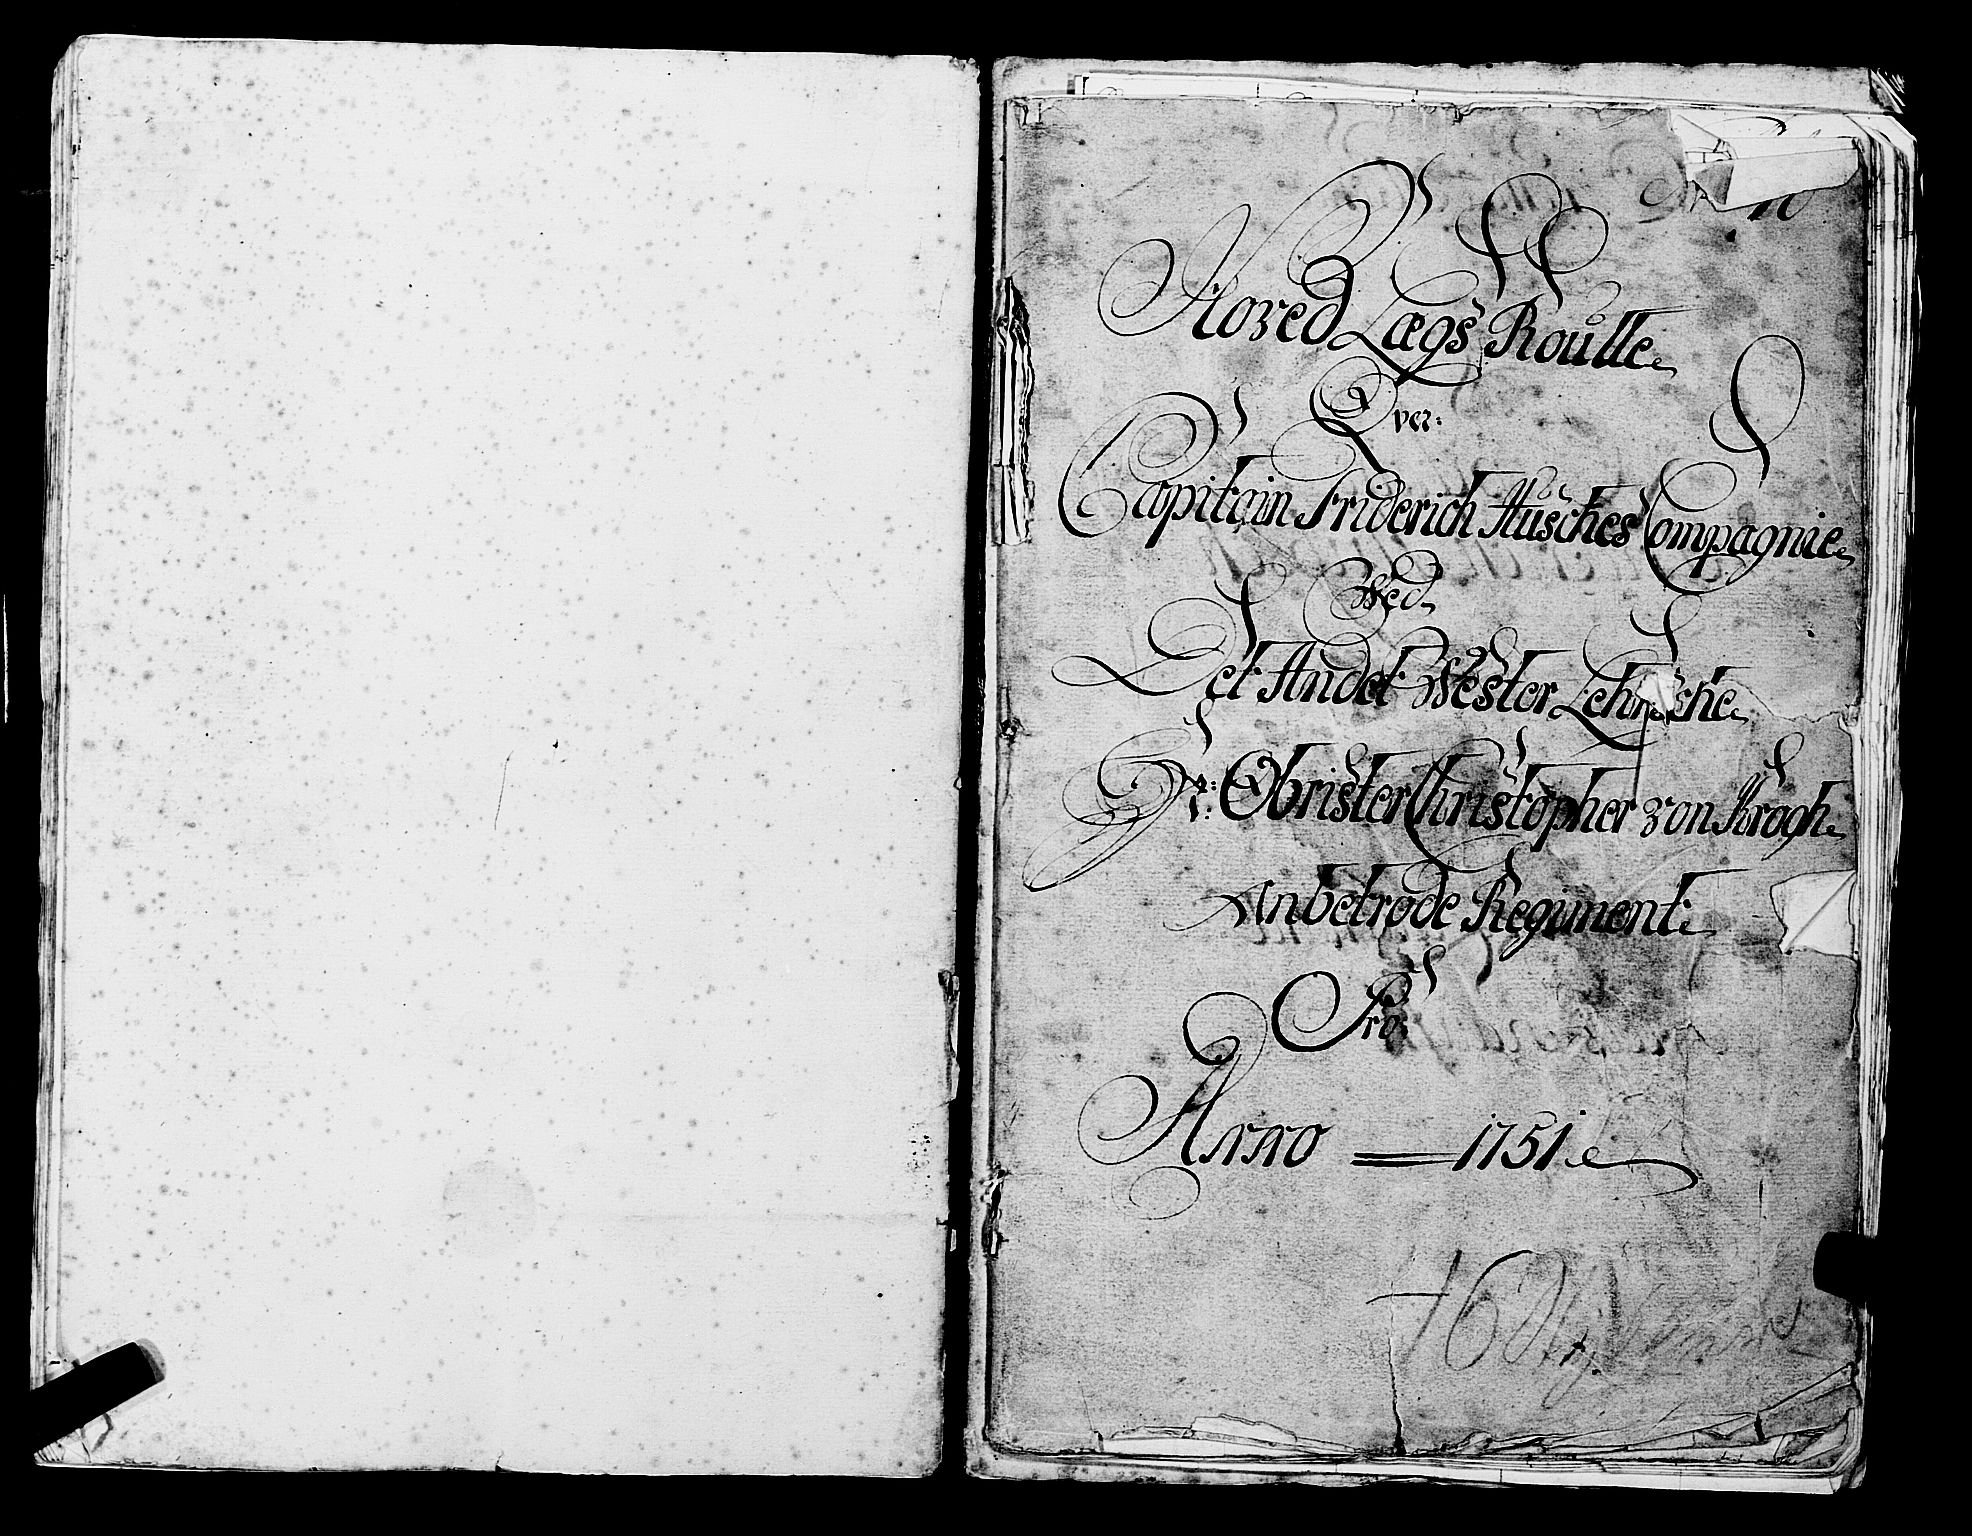 Hoved Lægs Roulle
Over:
Capitain Friderich Husches Compagnie
Wed
Det Andet Wester Lehnske
Hr: Obrister Christopher von Krogh
Anbetrode Regiment
Pro:
Anno 1751